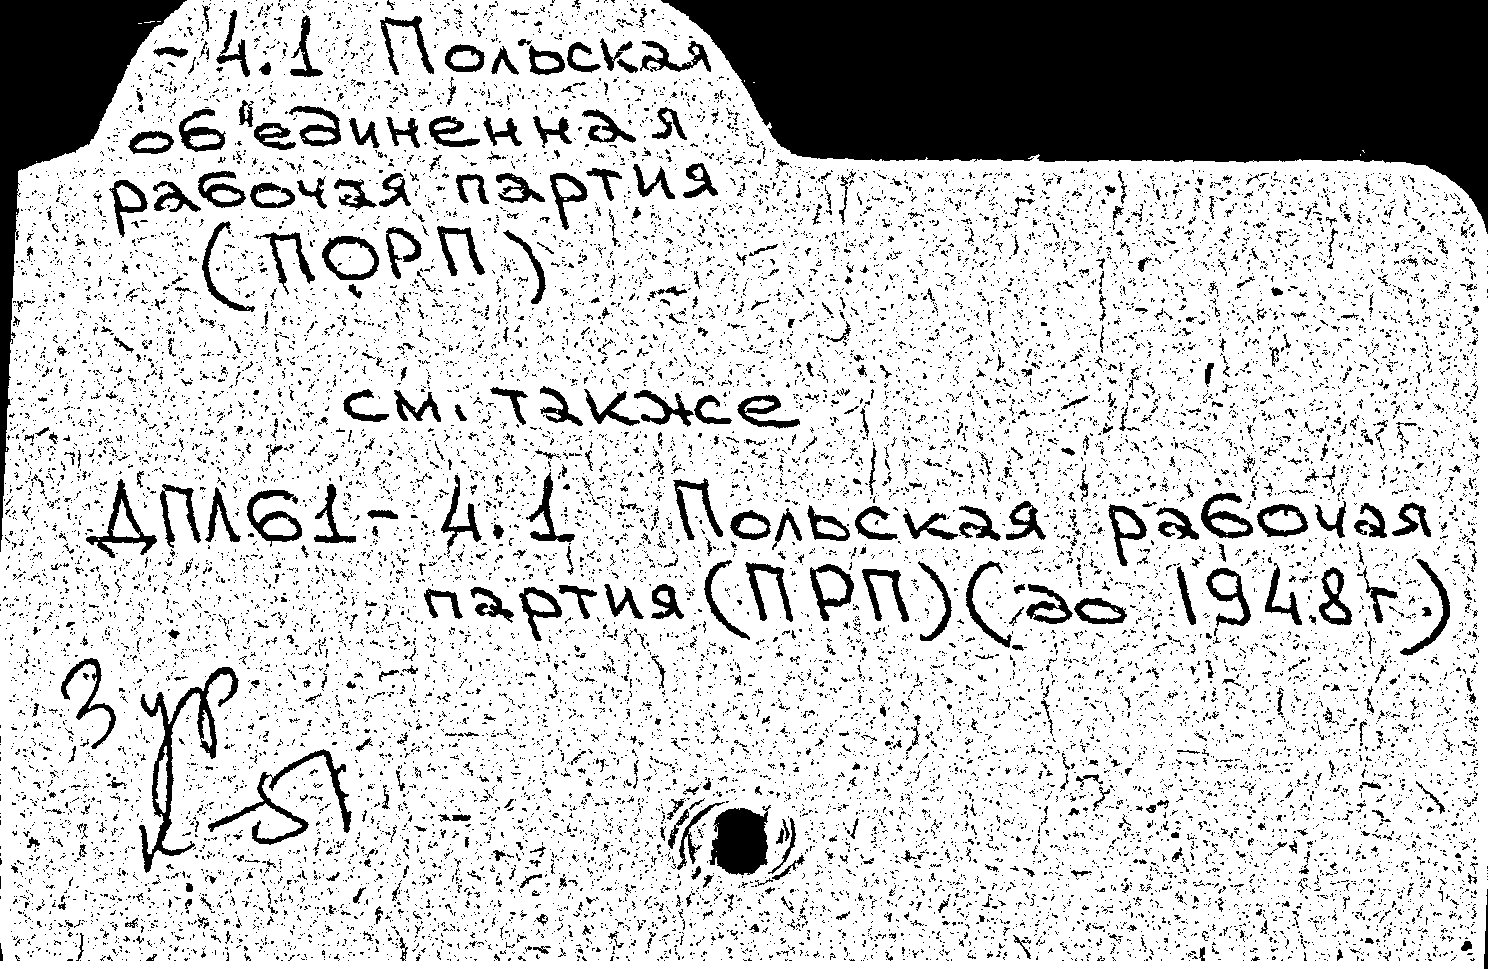 - 4.1 Польская
об"единенная
рабочая партия
(ПОРП)
см. также
ДПЛ61- 4.1 Польская рабочая
партия (ПРП) (до 1948 г.)
3 ур